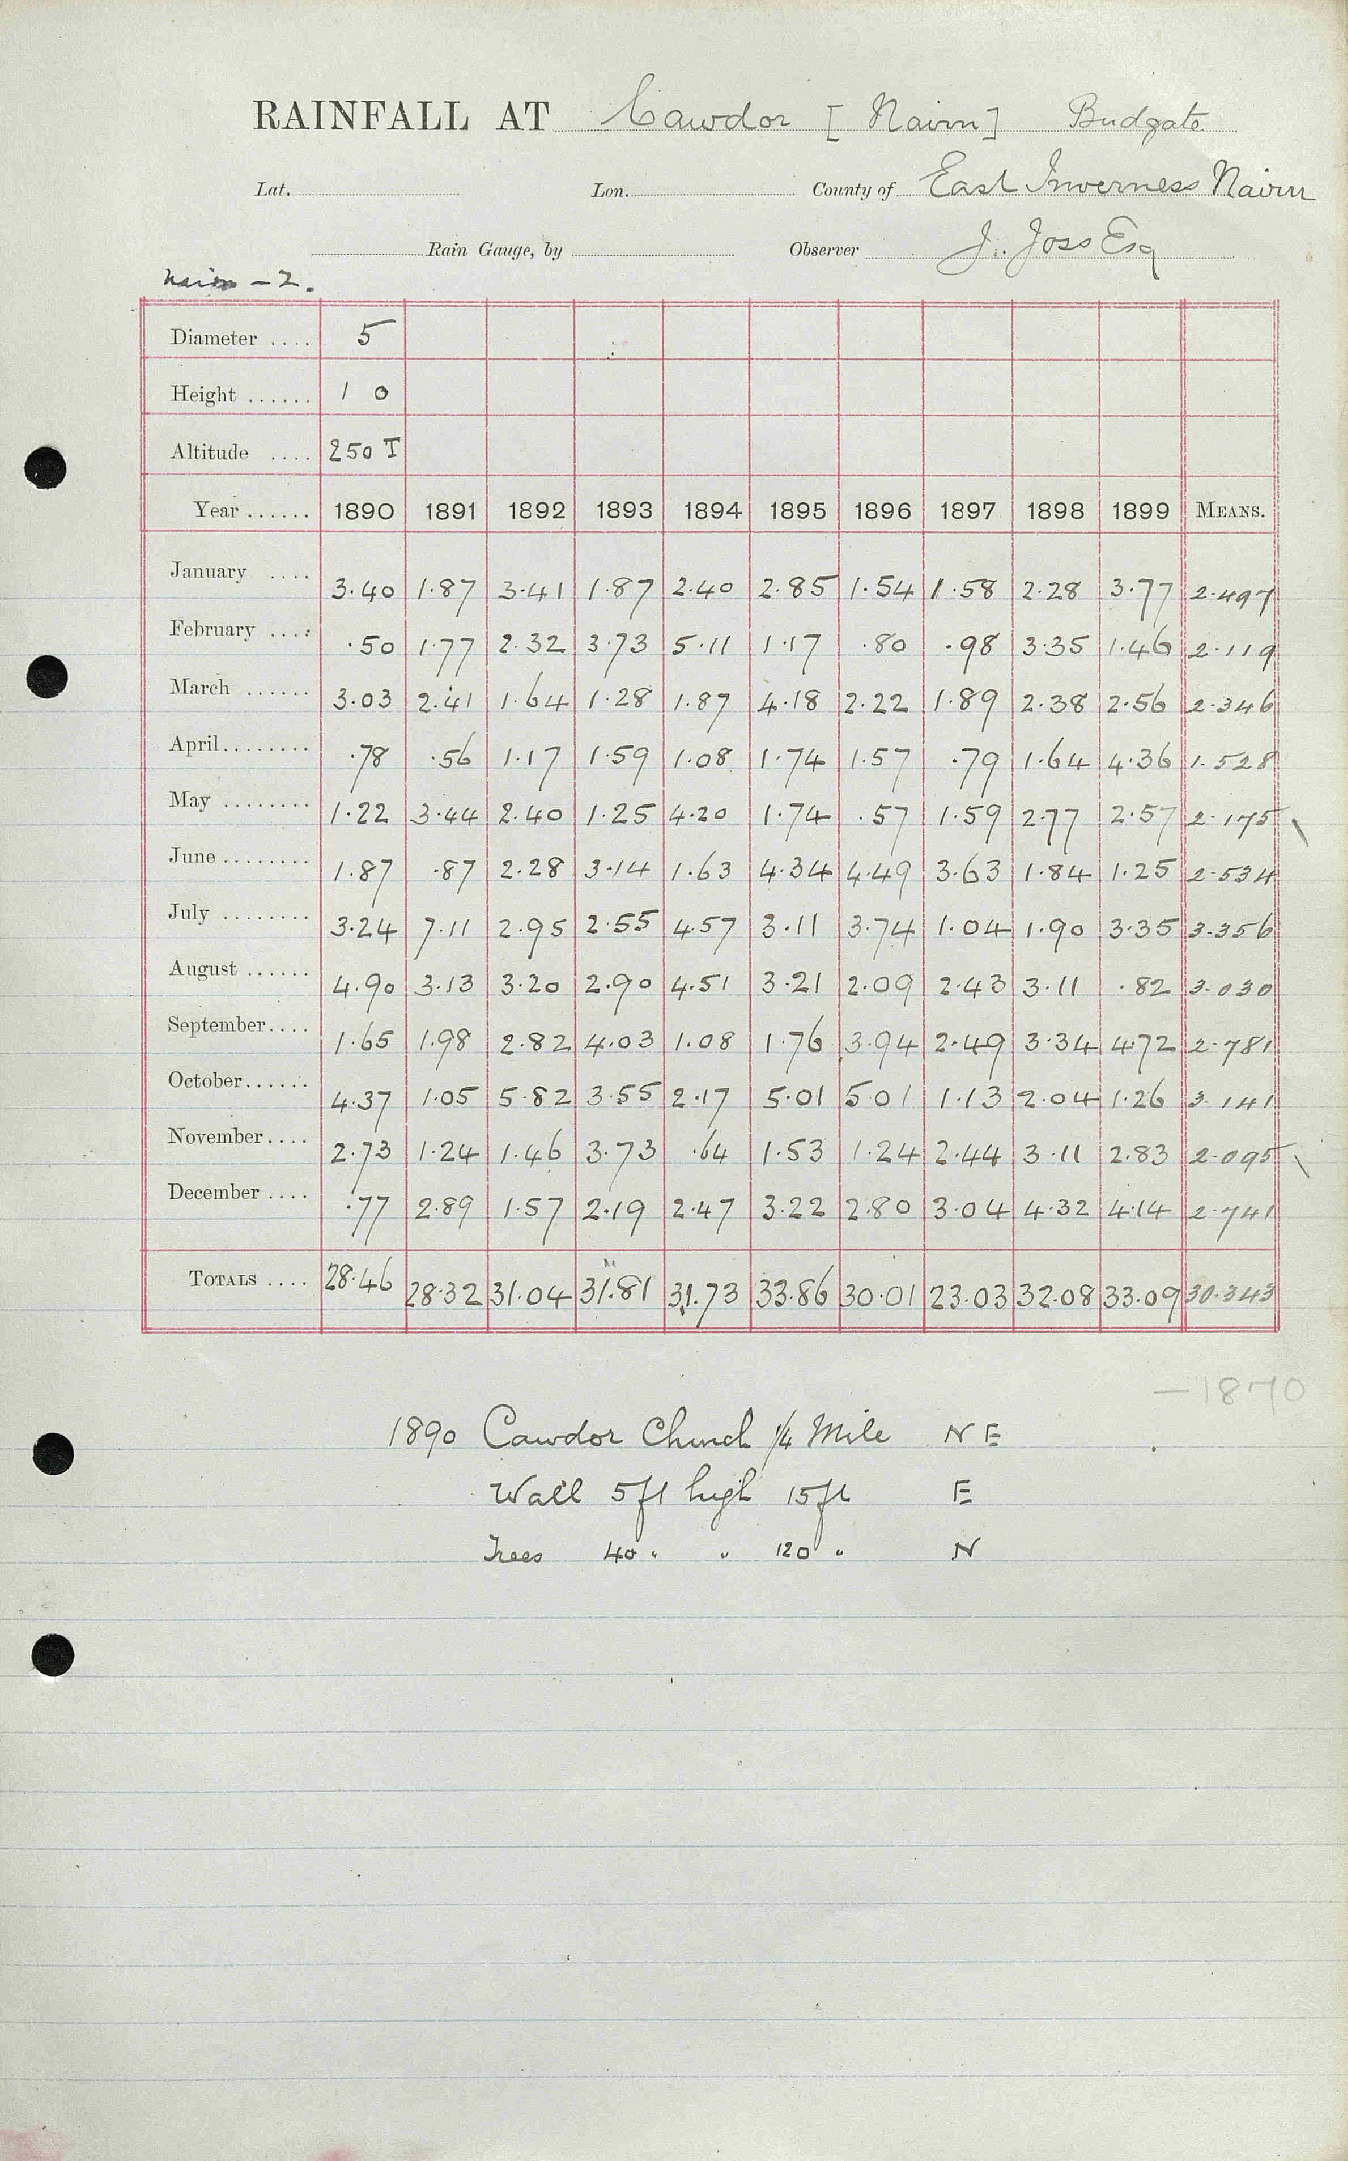 RAINFALL AT Cawdor [Nairn] Budgate
Lat. Lon. County of East Inverness Nairn
Rain Gauge, by Observer J. Joss Esq
Nairn - 2.
Diameter .... 5
Height ...... 1 0
Altitude .... 250 T
Year ...... 1890 1891 1892 1893 1894 1895 1896 1897 1898 1899 MEANS.
January .... 3.40 1.87 3.41 1.87 2.40 2.85 1.54 1.58 2.28 3.77 2.497
February .... .50 1.77 2.32 3.73 5.11 1.17 .80 .98 3.35 1.46 2.119
March ...... 3.03 2.41 1.64 1.28 1.87 4.18 2.22 1.89 2.38 2.56 2.346
April........ .78 .56 1.17 1.59 1.08 1.74 1.57 .79 1.64 4.36 1.528
May ........ 1.22 3.44 2.40 1.25 4.20 1.74 .57 1.59 2.77 2.57 2.175 \
June ........ 1.87 .87 2.28 3.14 1.63 4.34 4.49 3.63 1.84 1.25 2.534
July ........ 3.24 7.11 2.95 2.55 4.57 3.11 3.74 1.04 1.90 3.35 3.356
August ...... 4.90 3.13 3.20 2.90 4.51 3.21 2.09 2.43 3.11 .82 3.030
September.... 1.65 1.98 2.82 4.03 1.08 1.76 3.94 2.49 3.34 4.72 2.781
October...... 4.37 1.05 5.82 3.55 2.17 5.01 5.01 1.13 2.04 1.26 3.141
November.... 2.73 1.24 1.46 3.73 .64 1.53 1.24 2.44 3.11 2.83 2.095 \
December .... .77 2.89 1.57 2.19 2.47 3.22 2.80 3.04 4.32 4.14 2.741
TOTALS .... 28.46 28.32 31.04 31.81 31.73 33.86 30.01 23.03 32.08 33.09 30.343
- 1870
1890 Cawdor Church 1/4 Mile N E
Wall 5ft high 15ft E
Trees 40 " " 120 " N